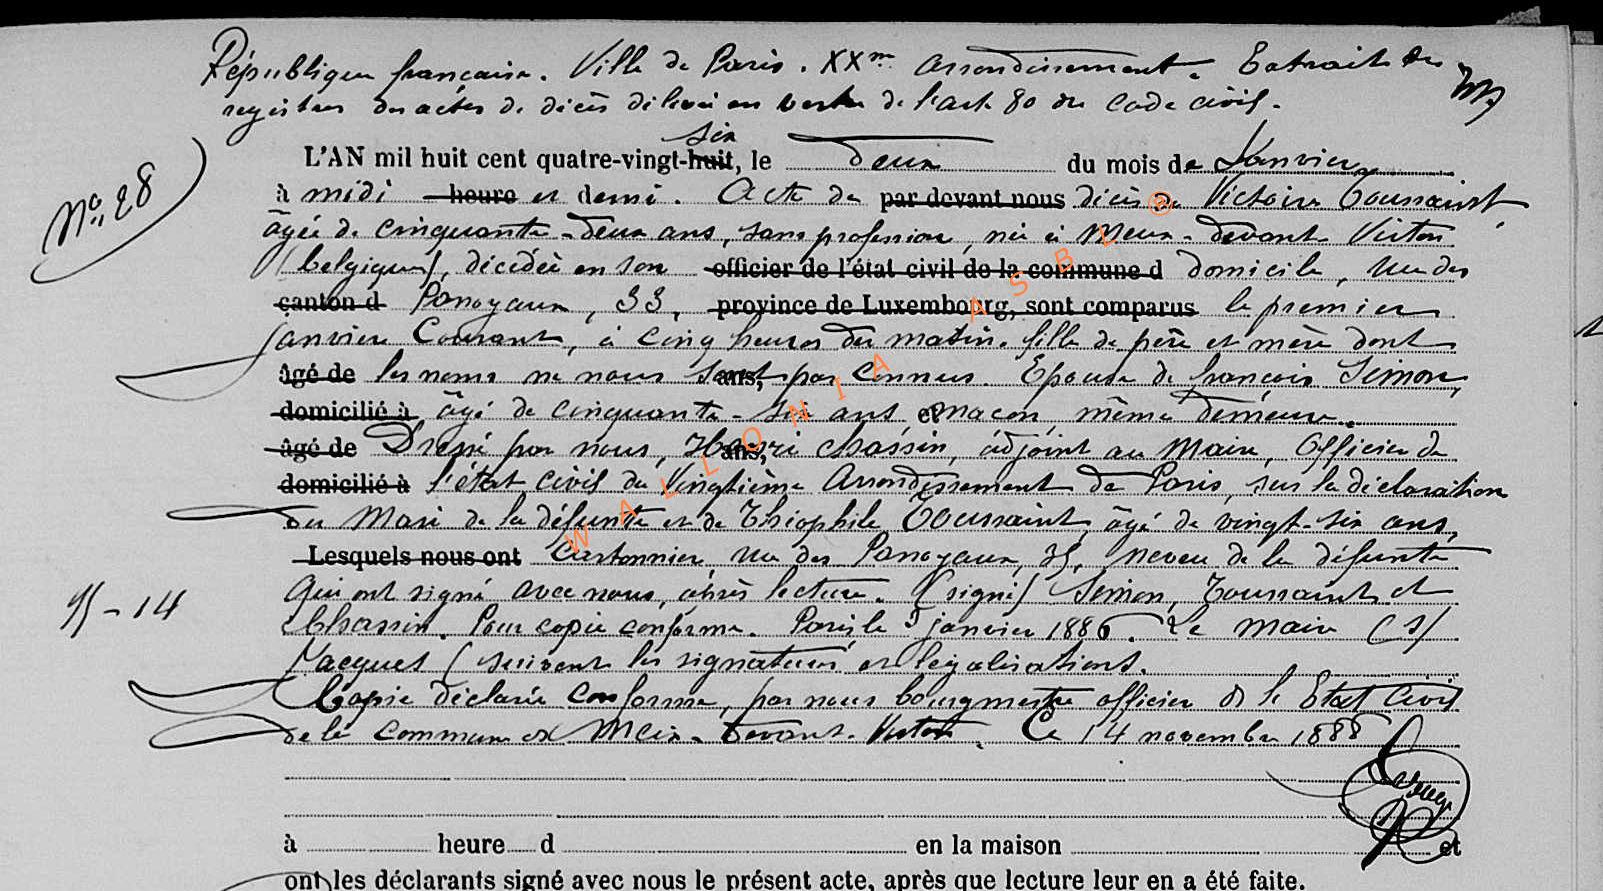 République française. Ville de Paris. XXme arrondissement. Extrait des
registres des actes de décès délivré en vertu de l'art 80 du Code civil.
six
L'AN mil huit cent quatre-vingt-huit, le deux du mois de Janvier
No 28
à midi heure et demi. Acte de par devant nous décès de Victoire Toussaint,
âgée de cinquante-deux ans, sans profession, née à Meux-devant-Virton
(Belgique), décédée en son officier de l'état civil de la commune d domicile, rue des
canton d Panoyaux, 33, province de Luxembourg, sont comparus le premier
janvier Courant, à cinq heures du matin. fille de père et mère dont
âgé de les noms ne nous sont ans, pas connus. Epouse de françois Simon,
domicilié à âgé de cinquante-six ans et maçon, même demeure.
âgé de Dressé par nous, Henri ans, Chassin, adjoint au Maire, Officier de
domicilié à l'état civil du Vingtième Arrondissement de Paris, sur la déclaration
du Mari de la défunte et de Théophile Toussaint, âgé de vingt-six ans,
Lesquels nous ont Cartonnier, rue des Panoyaux, 35, neveu de la défunte
qui ont signé avec nous, après lecture. (signé) Simon, Toussaint et
15-14
Chassin. Pour copie conforme. Paris, le 5 janvier 1886. Le Maire (s)
Jacques (suivent les signatures et légalisations.
Copie déclarée conforme, par nous bourgmestre officier de l'Etat Civil
de la Commune de Meix-Devant-Virton. Ce 14 novembre 1888
à heure d en la maison et
ont les déclarants signé avec nous le présent acte, après que lecture leur en a été faite.
® WALLONIA ASBL